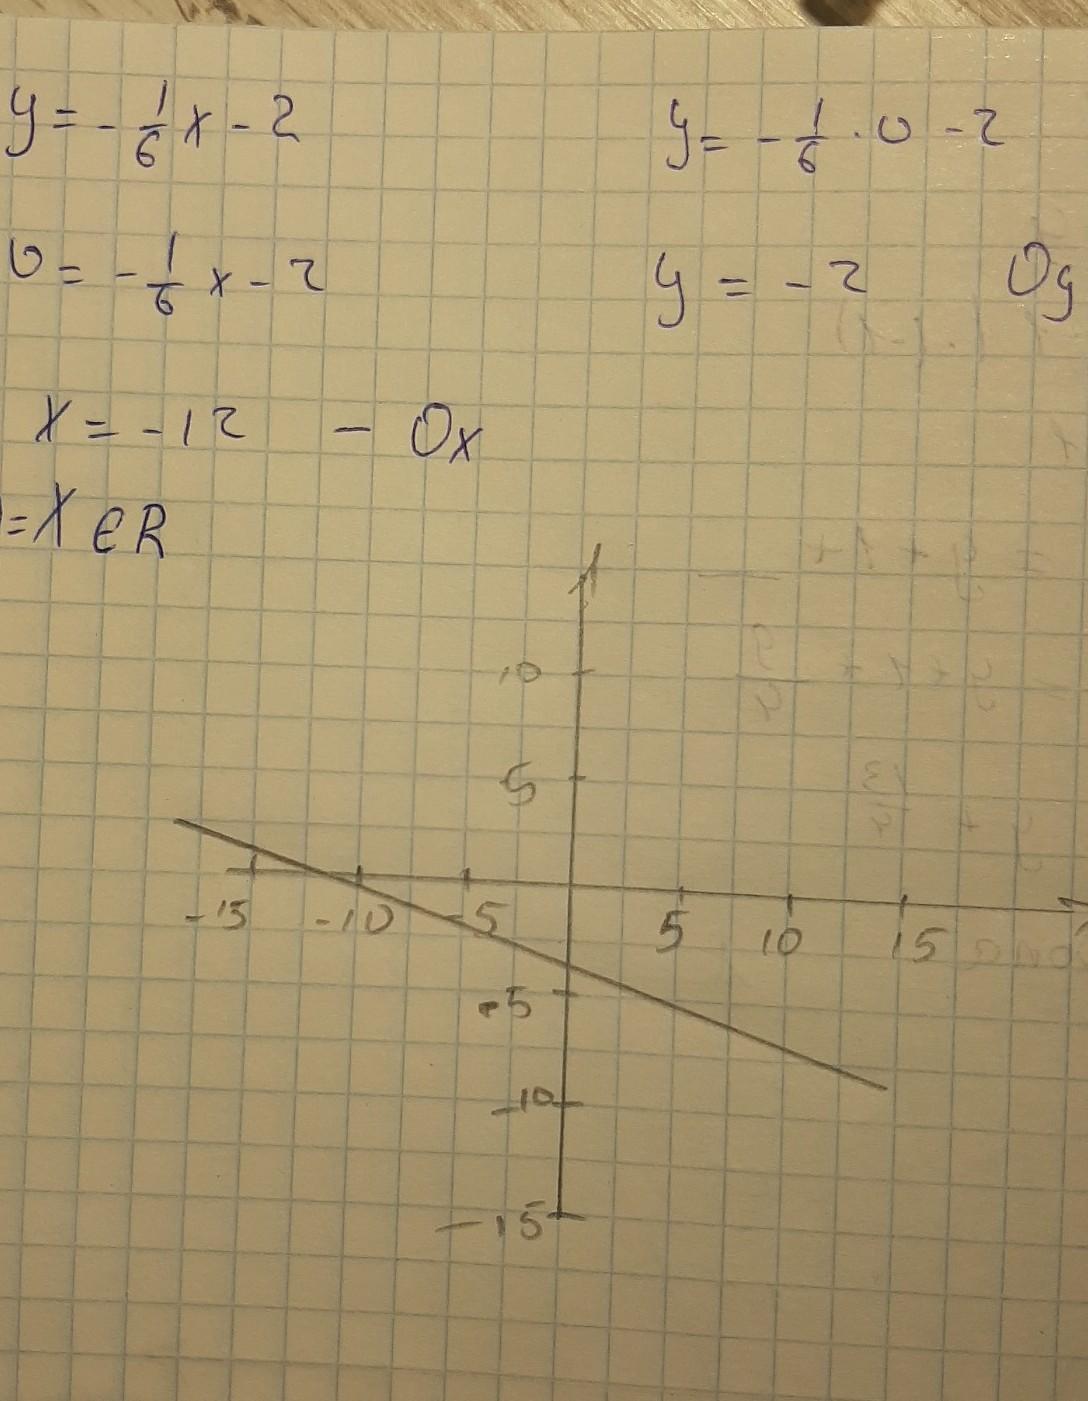 y = - 1/6 x - 2
y = - 1/6 · 0 - 2
0 = - 1/6 x - 2
y = - 2 Oy
x = - 12 - Ox
= X ∈ R
10
5
-15 -10 -5 5 10 15
-5
-10
-15